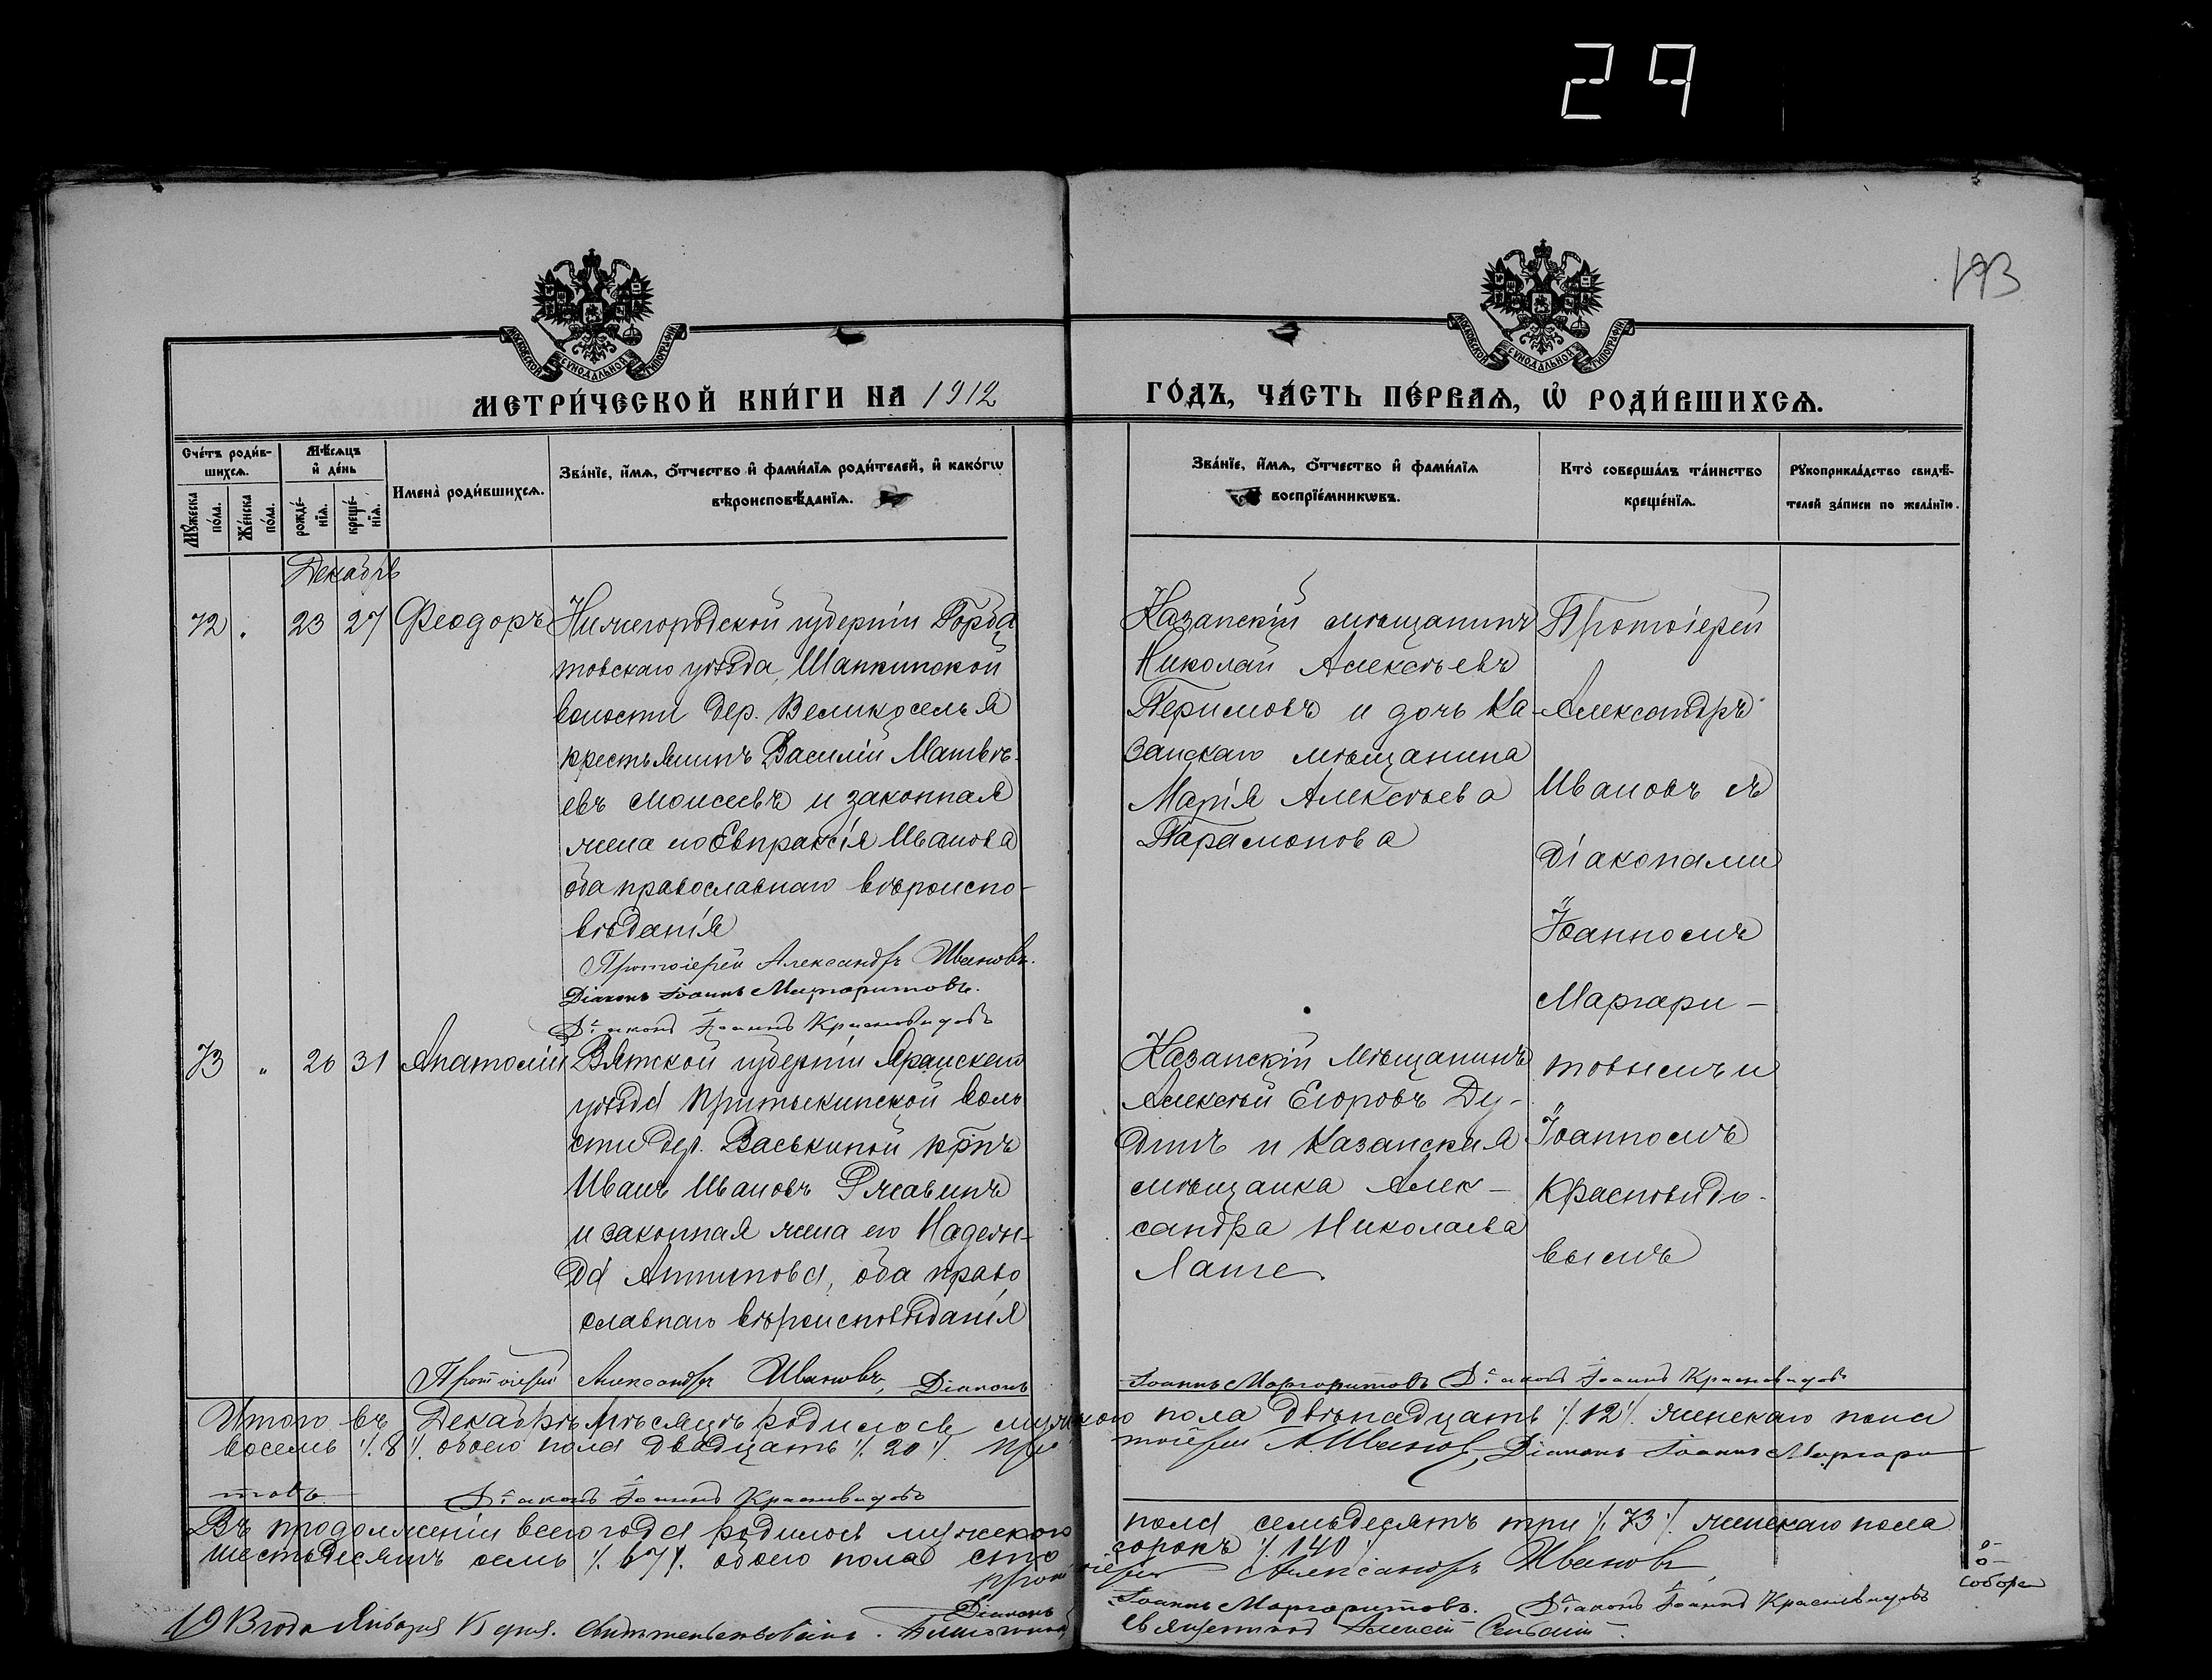 29
193
МОСКОВСКОЙ СѴНОДАЛЬНОЙ ТИПОГРАФІИ
МОСКОВСКОЙ СѴНОДАЛЬНОЙ ТИПОГРАФІИ
МЕТРИ́ЧЕСКОЙ КНИ́ГИ НА 1912
ГО́ДЪ, ЧА́СТЬ ПЕ́РВАѦ, Ѡ҆ РОДИ́ВШИХСѦ.
Сче́тъ роди́в-
шихсѧ.
Мꙋ́жеска по́ла.
Же́нска по́ла.
Мѣ́сѧцъ
и҆ де́нь
рожде́-
нїѧ.
креще́-
нїѧ.
Имена̀ роди́вшихсѧ.
Зва́нїе, и҆́мѧ, ѻ҆́тчество и҆ фами́лїѧ роди́телей, и҆ како́гѡ
вѣроисповѣ́данїѧ.
Зва́нїе, и҆́мѧ, ѻ҆́тчество и҆ фами́лїѧ
воспрїе́мникѡвъ.
Кто̀ соверша́лъ та́инство
креще́нїѧ.
Рꙋкоприкла́дство свидѣ́-
телей за́писи по жела́нїю.
Декабрь
72 23 27 Феодоръ
Нижегородской губерніи Горба
товскаго уѣзда, Шапкинской
волости дер. Великоселья
крестьянинъ Василій Матвѣ-
евъ Моисеевъ и законная
жена его Евпраксія Иванова
оба православнаго вѣроиспо-
вѣданія
Протоіерей Александръ Ивановъ.
Діаконъ Іоаннъ Маргаритовъ.
Діаконъ Іоаннъ Красновидовъ
Казанскій мѣщанинъ
Николай Алексѣевъ
и дочь Ка-
занскаго мѣщанина
Марія Алексѣева
Парамонова
Протоіерей
Александръ
Ивановъ съ
діаконами
Іоанномъ
Маргари-
товымъ и
Іоанномъ
Красновидо-
вымъ
73 " 26 31 Анатолій
Вятской губерніи Яранскаго
уѣзда Притыкинской воло
сти дер. Васькиной кр-нъ
Иванъ Ивановъ Ржавинъ
и законная жена его Надеж-
да Антипова, оба право
славнаго вѣроисповѣданія
Казанскій мѣщанинъ
Алексѣй Егоровъ Ду-
динъ и Казанская
мѣщанка Алек-
сандра Николаева
Лапе
Протоіерей Александръ Ивановъ, Діаконъ
Іоаннъ Маргаритовъ Діаконъ Іоаннъ Красновидовъ
Итого въ Декабрѣ мѣсяцѣ родилось мужскаго пола двѣнадцать %12% женскаго пола
восемь %8% обоего пола двадцать %20% Протоіерей А. Ивановъ, Діаконъ Іоаннъ Маргари
товъ Діаконъ Іоаннъ Красновидовъ
Въ продолженіи всего года родилось мужескаго пола семьдесятъ три %73% женскаго пола
шестьдесятъ семь %67% обоего пола сто сорокъ %140%
Протоіерей Александръ Ивановъ
Діаконъ Іоаннъ Маргаритовъ. Діаконъ Іоаннъ Красновидовъ
1913 года Января дня. Свидѣтельствовалъ.
Священникъ Алексій
собора